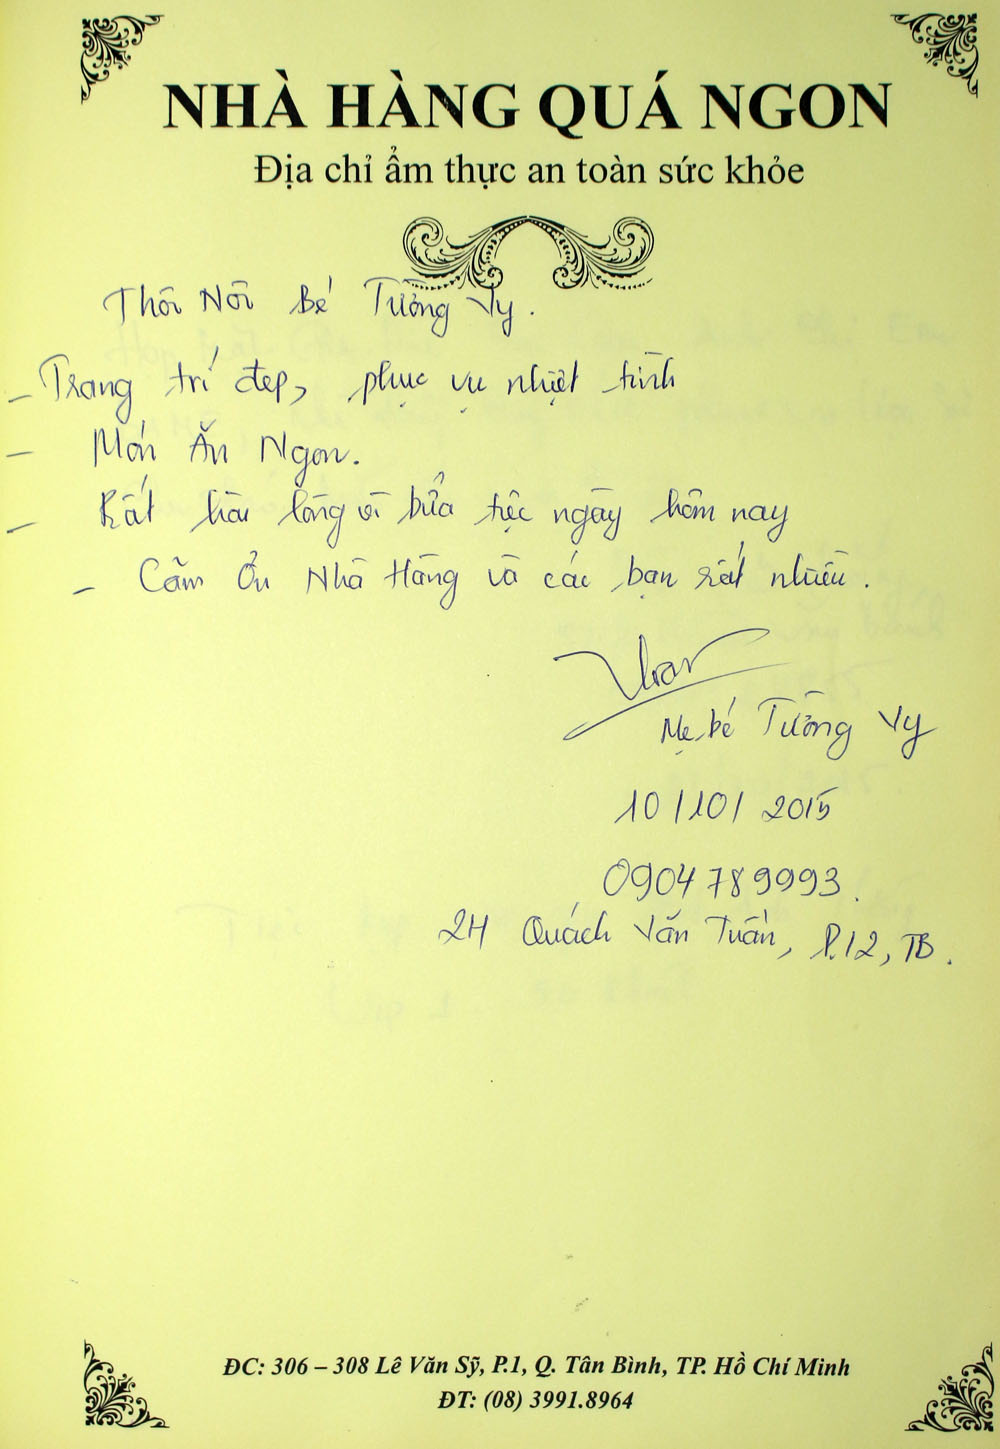 NHÀ HÀNG QUÁ NGON
Địa chỉ ẩm thực an toàn sức khỏe
Thôi Nôi Bé Tường Vy.
- Trang trí đẹp, phục vụ nhiệt tình
- Món Ăn Ngon.
- Rất hài lòng vì bửa tiệc ngày hôm nay
- Cãm Ơn Nhà Hàng và các bạn rất nhiều.
Mẹ bé Tường Vy
10/10/2015
0904789993.
2H Quách Văn Tuấn, P.12, TB.
ĐC: 306 – 308 Lê Văn Sỹ, P.1, Q. Tân Bình, TP. Hồ Chí Minh
ĐT: (08) 3991.8964